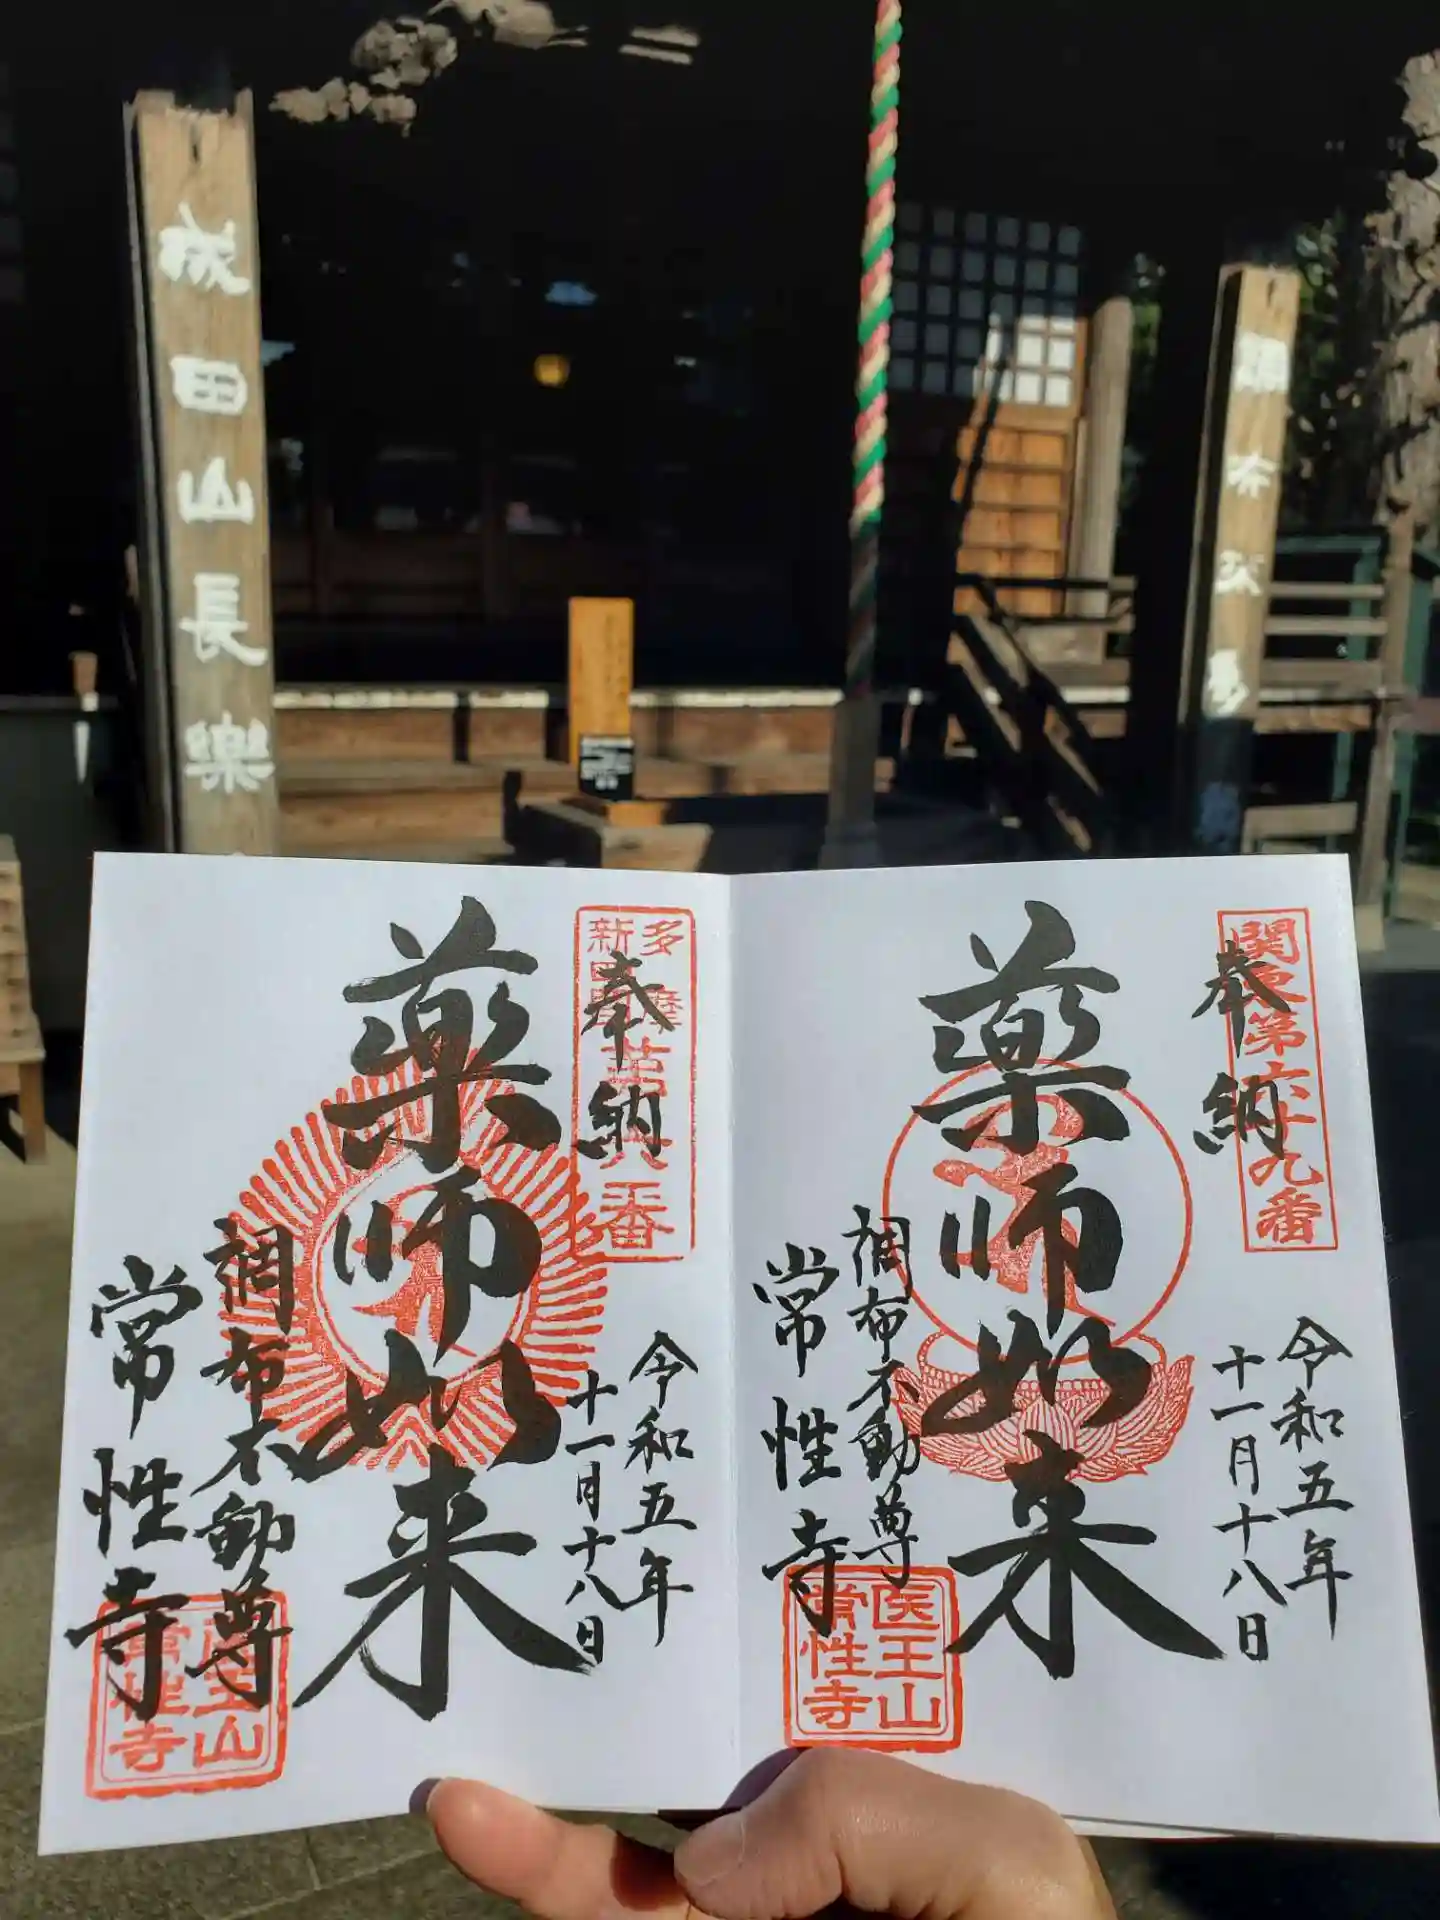 成田山長樂
調布不動尊
奉納
関東第六十九番
令和五年
十一月十八日
薬師如来
調布不動尊
常性寺
医王山
常性寺
奉納
多摩
新四国
第八番
令和五年
十一月十八日
薬師如来
調布不動尊
常性寺
医王山
常性寺